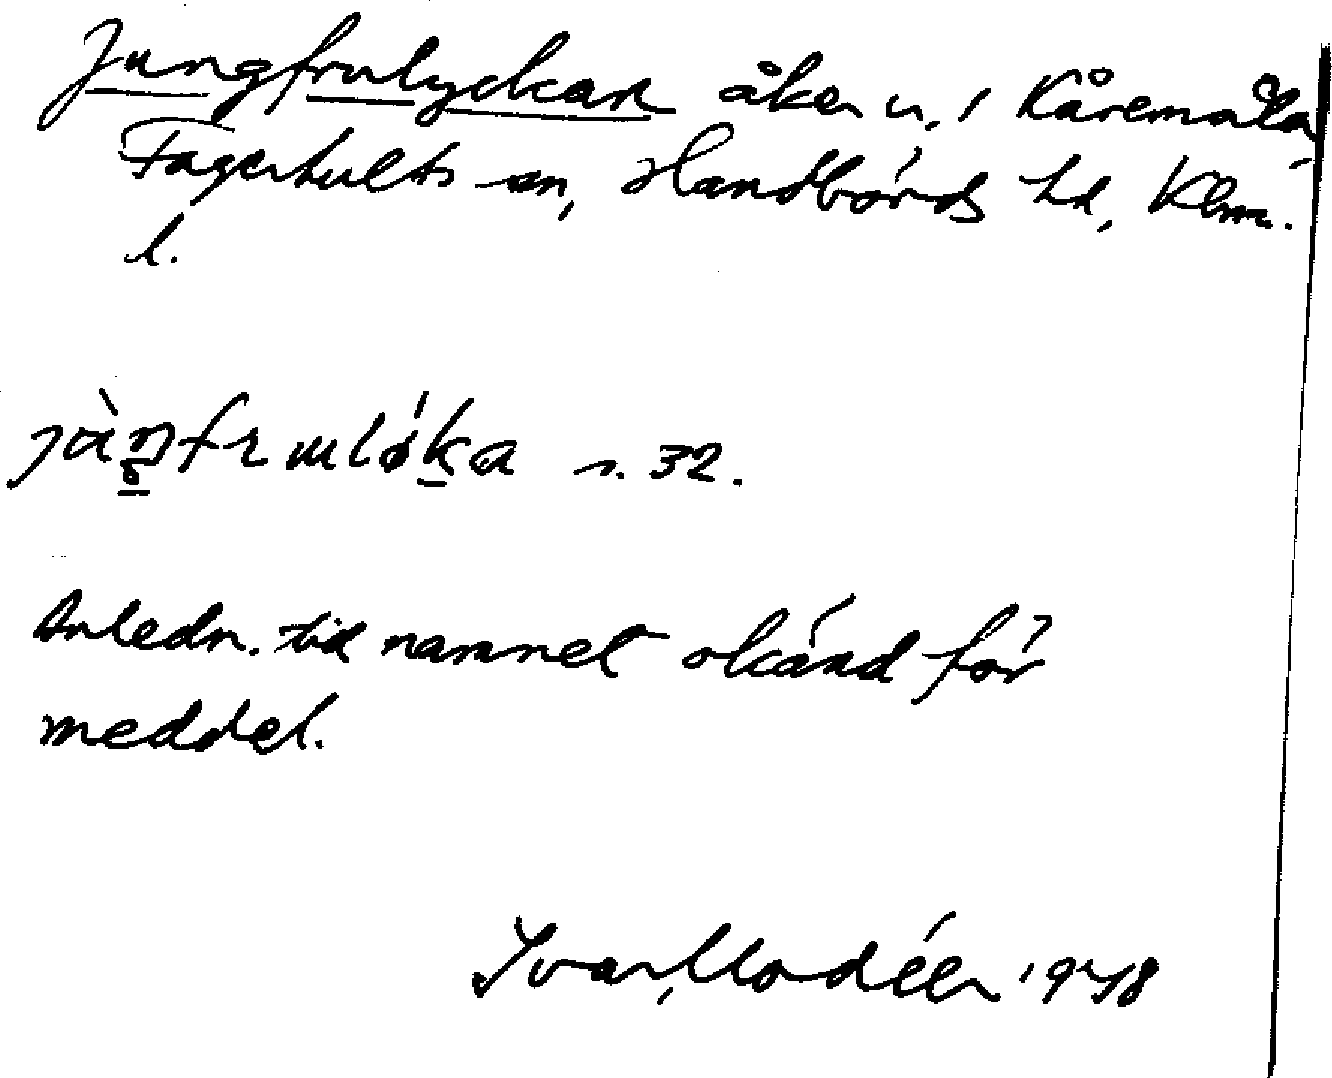 Jungfrulyckan åker n. i Kåremåla,
Fagerhults sn, Handbörds hd, Klm.
l.
jàŋfrulǿka n. 32.
Anledn. till namnet okänd för
meddel.
Ivar Modéer 1948